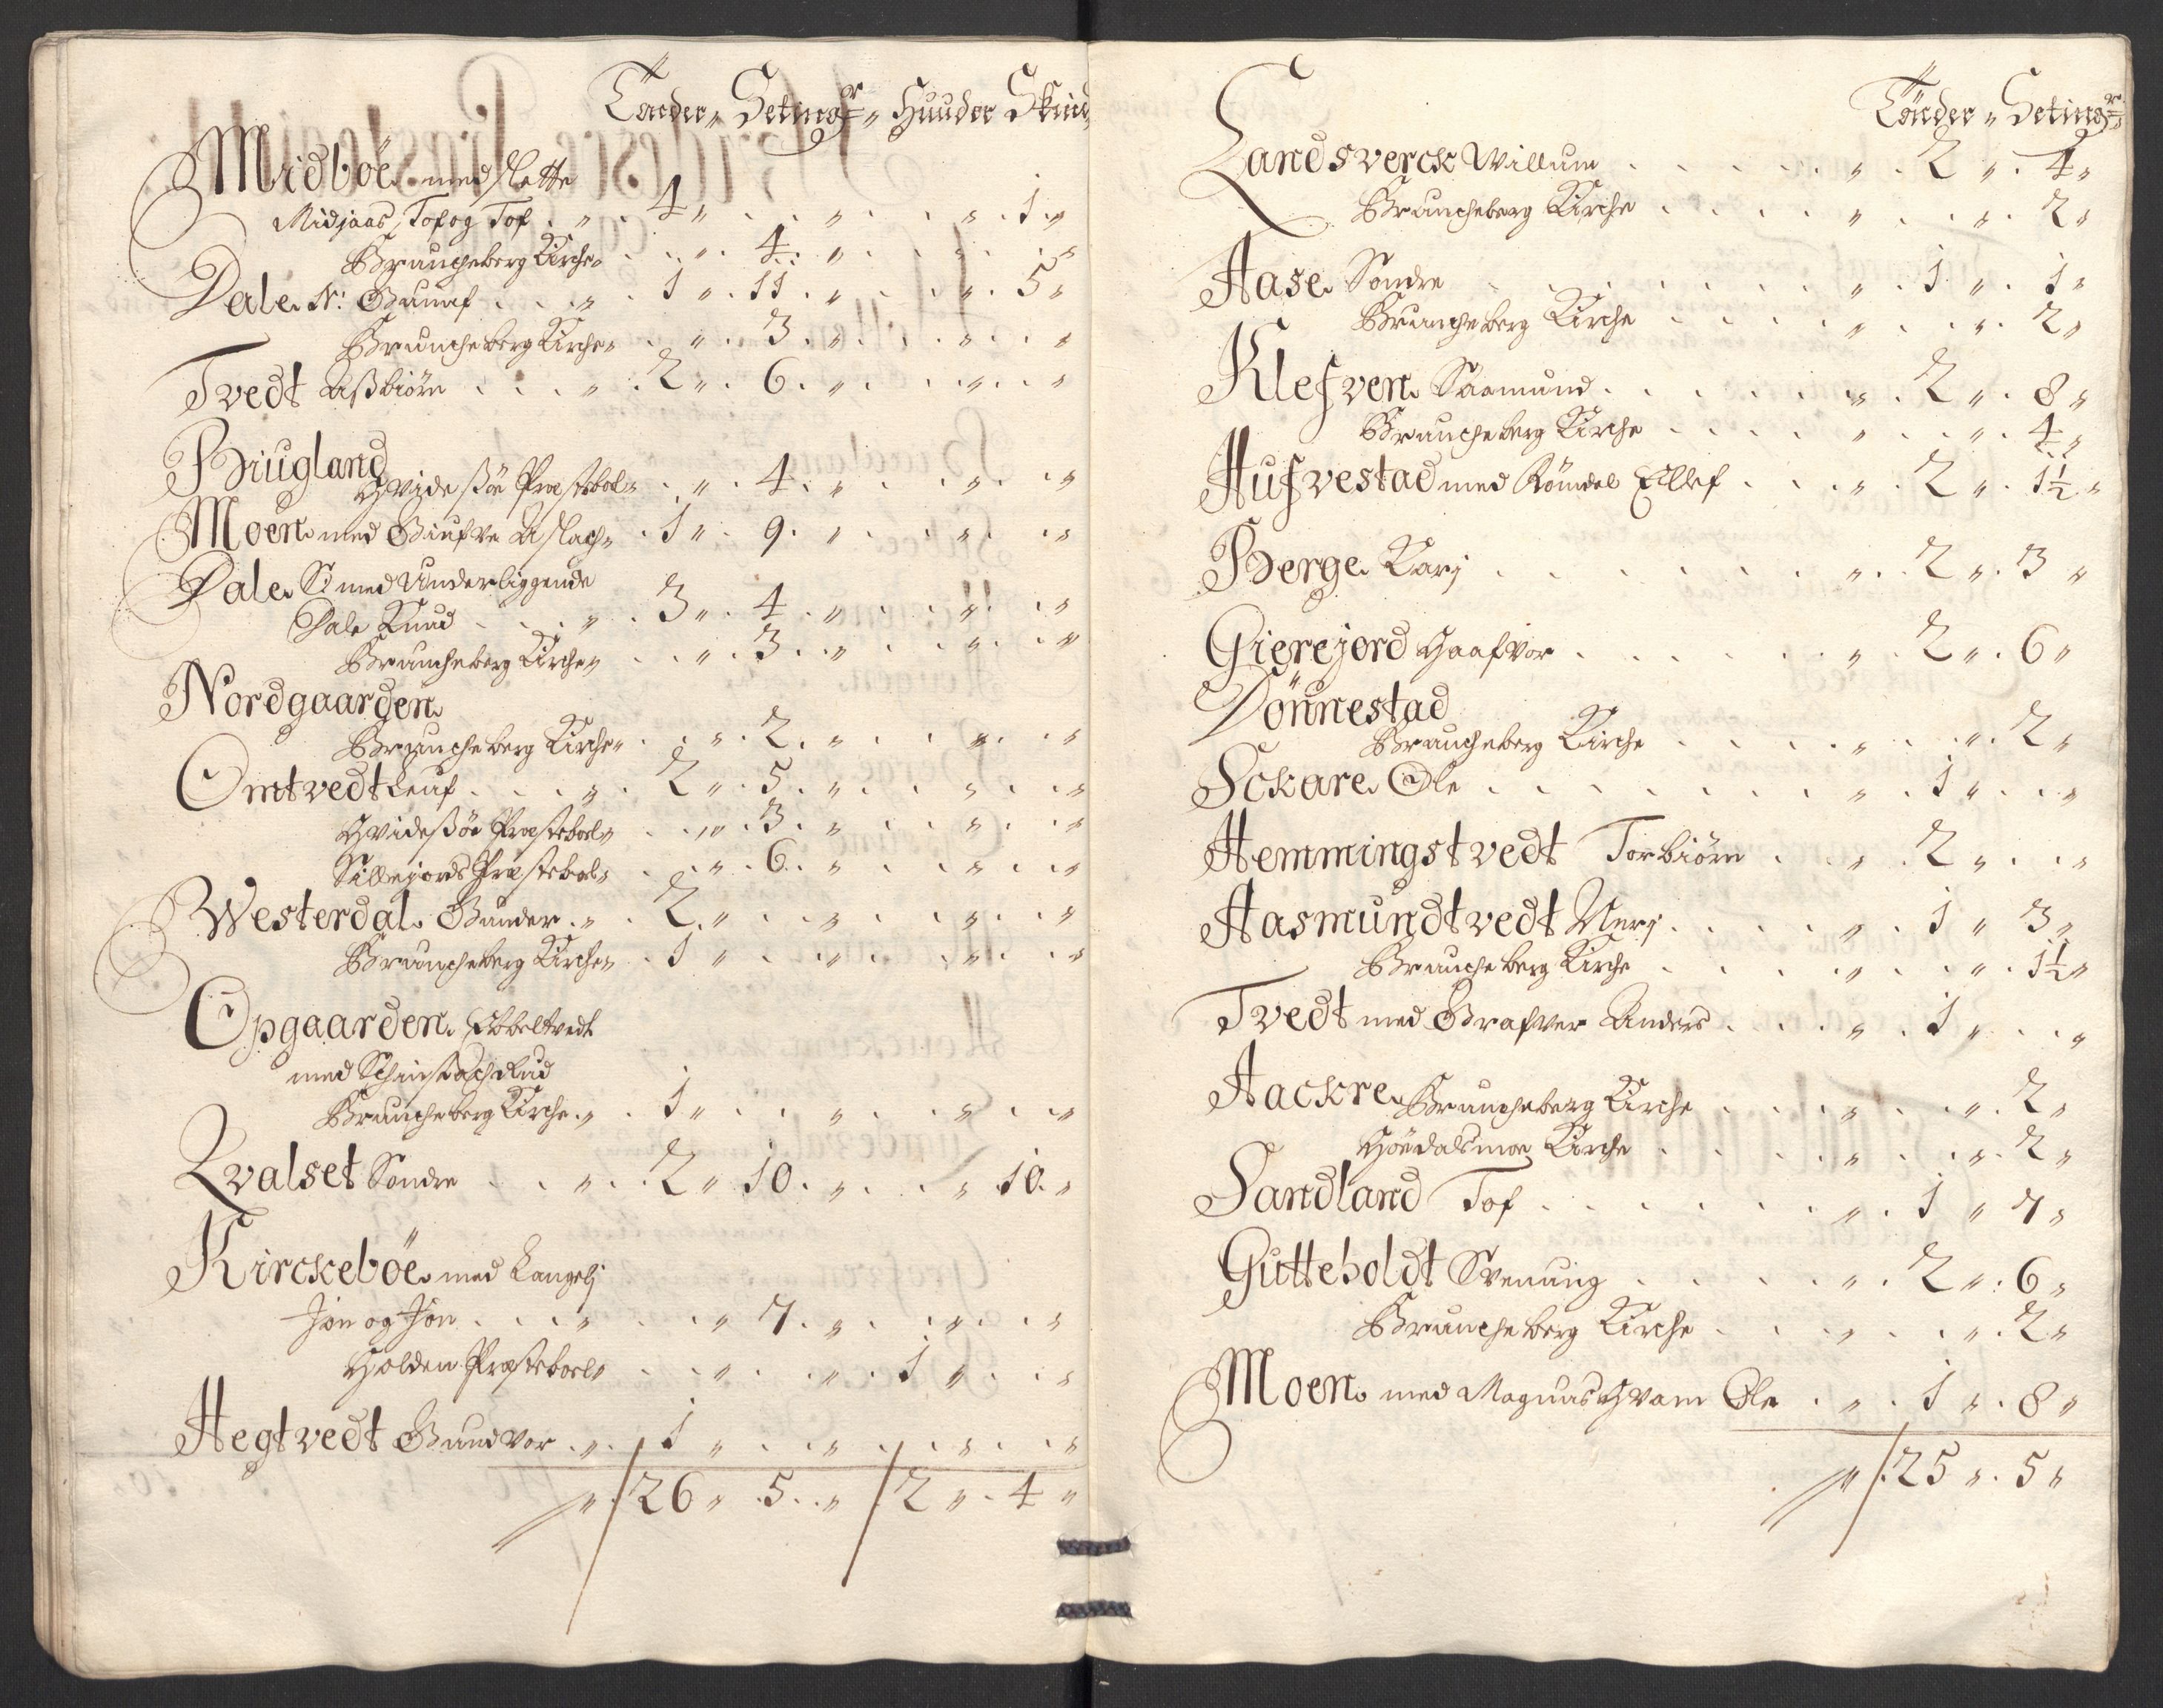 Tönder „ Setingr „ Huuder Skind
Midböe med Slette
Midjaas, Tof og Tof . „ . 4 „ . . „ . . „ . 1 . „
Bruncheberg Kirche „ . . „ . 4 . „ . . „ . . „
Dale N: Gunuf . . . „ . 1 „ . 11 . „ . . „ . 5 „
Bruncheberg Kirche „ . . „ . 3 . „ . . „ . . „
Tvedt Aßbiörn . . . „ . 2 „ . 6 . „ . . „ . . „
Biugland
Hvideßöe Præstebol „ . . „ . 4 . „ . . „ . . „
Moen med Giufve Aslach „ . 1 „ . 9 . „ . . „ . . „
Dale S: med Underliggende
Dale Knud . . . „ . 3 „ . 4 . „ . . „ . . „
Bruncheberg Kirche „ . . „ . 3 . „ . . „ . . „
Nordgaarden
Bruncheberg Kirche „ . . „ . 2 . „ . . „ . . „
Omtvedt Leuf . . . „ . 2 „ . 5 . „ . . „ . . „
Hvideßöe Præstebol „ . . „ . 3 . „ . . „ . . „
Sillejords Præstebol „ . . „ . 6 . „ . . „ . . „
Westerdal Gunder . „ . 2 . „ . . „ . . „ . . „
Bruncheberg Kirche „ . 1 „ . . „ . . „ . . „
Opgaarden Ebbeltvedt
med Schinstachrud
Bruncheberg Kirche . „ . 1 „ . . „ . . „ . . „
Qvalset Sondre . . „ . 2 „ 10 . „ . . „ 10 . „
Kirckeböe med Langelj
Jon og Jon . . . „ . . „ 7 . „ . . „ . . „
Holden Præstebol „ . . „ . . „ . 1 „ . . „
Hegtvedt Gundvor . „ . 1 „ . . „ . . „ . . „
„ . 26 „ . 5 . „ . 2 „ . 4 „
Tönder „ Setingr
Landsverck Willum . . . . . „ . 2 „ . 4 „
Bruncheberg Kirche . . . . „ . . „ . 2 „
Aase Sondre . . . . . . „ . 1 „ . 1 „
Bruncheberg Kirche . . . . „ . . „ . 2 „
Klefven Saamund . . . . . „ . 2 „ . 8 „
Bruncheberg Kirche . . . . „ . . „ . 4 „
Hufvestad med Römdal Ellef . . . „ . 2 „ . 1½ „
Berge Karj . . . . . . „ . 2 „ . 3 „
Gierejord Haafvor . . . . . „ . 2 „ . 6 „
Dönnestad
Bruncheberg Kirche . . . . „ . . „ . 2 „
Sckare Ole . . . . . . . „ . 1 „ . . „
Hemmingstvedt Torbiörn . . „ . 2 „ . . „
Aasmundtvedt Nerj . . . . „ . 1 „ 3 „
Bruncheberg Kirche . . . . „ . . „ . 1½ „
Tvedt med Grafver Anders . . . „ . 1 „ . . „
Aackre Bruncheberg Kirche . . . „ . . „ . 2 „
Höydalsmoe Kirche . . . . „ . . „ . 2 „
Sandland Tof . . . . . . „ . 1 „ 7 „
Gutteholdt Svenung . . . . „ . 2 „ . 6 „
Bruncheberg Kirche . . . „ . . „ . 2 „
Moen med Magnushvam Ole . „ . 1 „ . 8 „
„ . 25 „ . 5 „